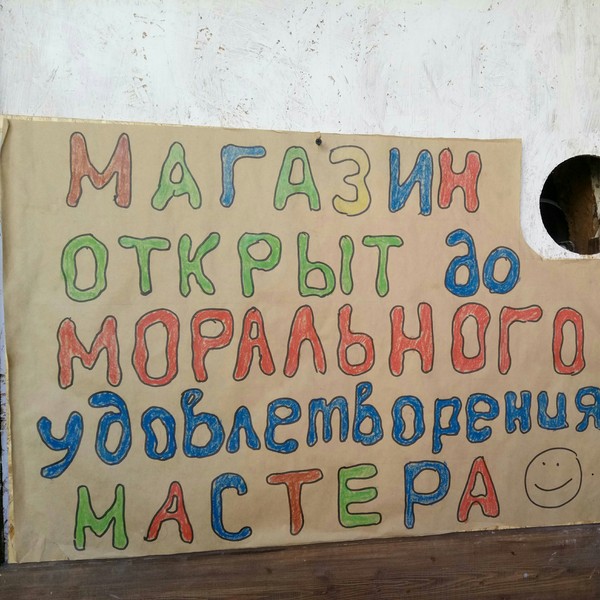 МАГАЗИН
ОТКРЫТ до
МОРАЛЬНОГО
удовлетворения
МАСТЕРА